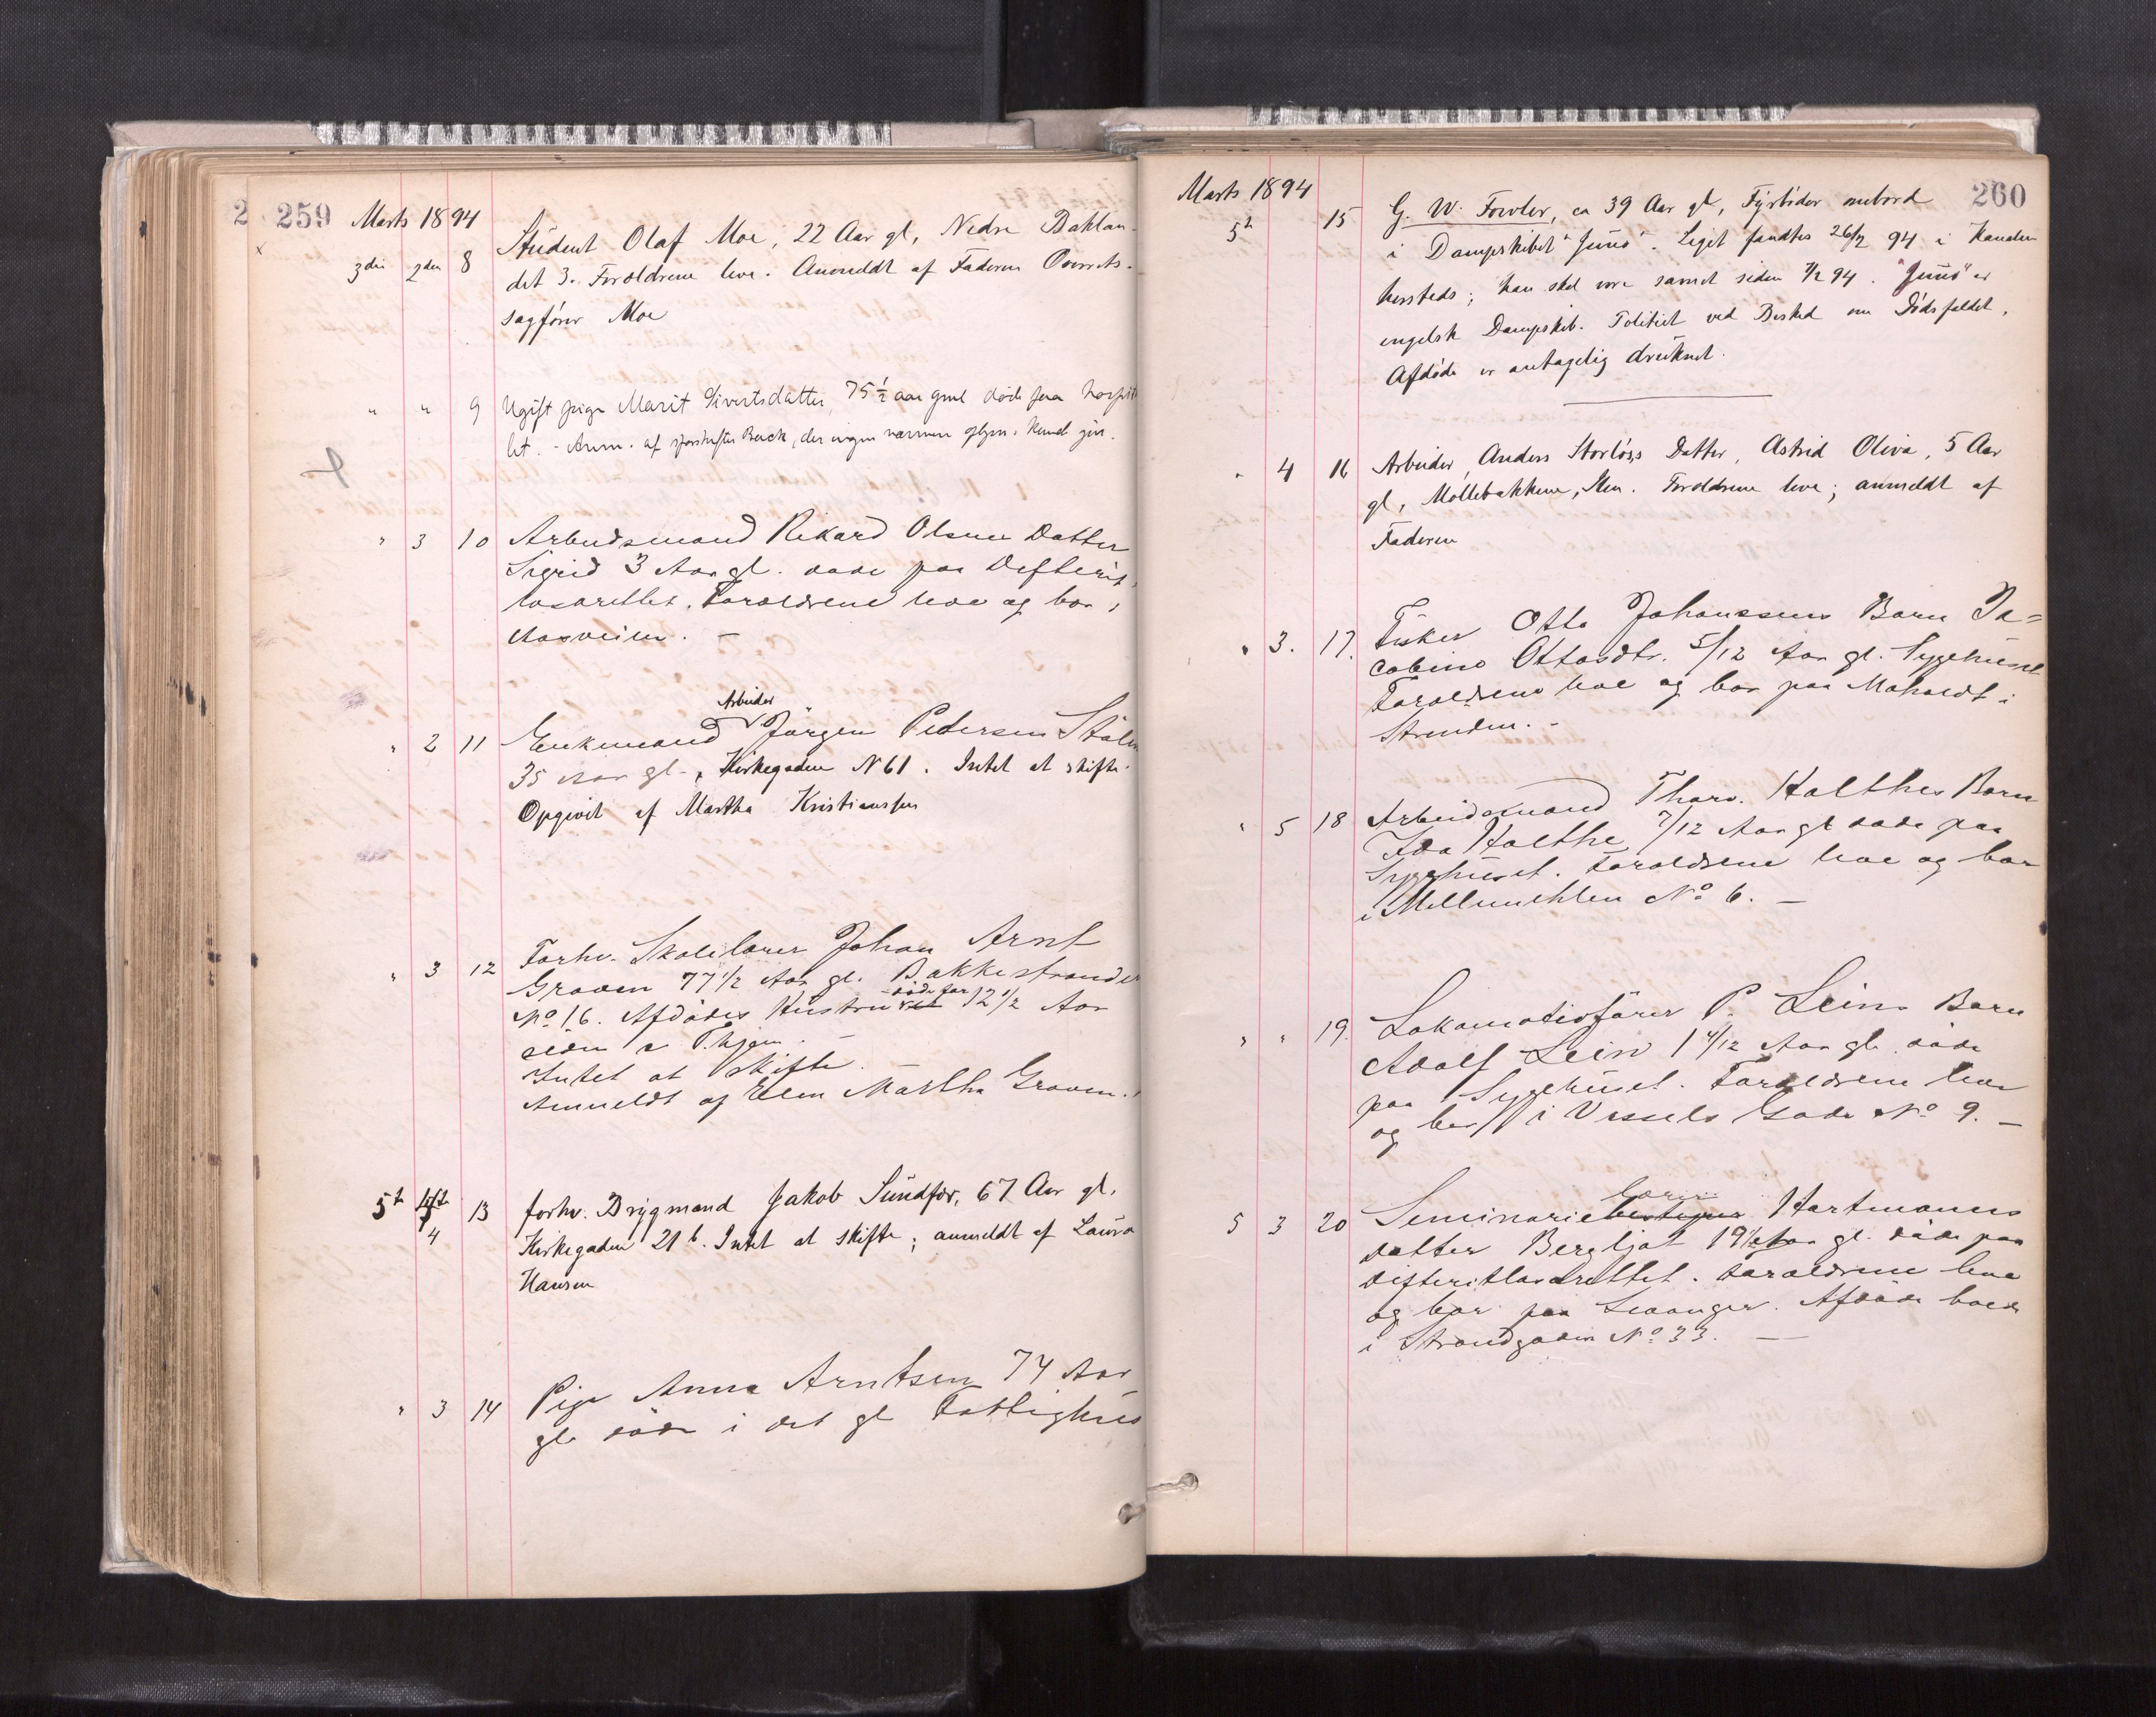 259
Marts 1894
3die 2den 8 Student Olaf Moe, 22 Aar gl, Nedre Baklan-
det 3. Forældrene leve. Anmeldt af Faderen Overrets-
sagfører Moe
" " 9 Ugift pige Marit Sivertsdatter, 75 1/2 aar gml døde paa hospita
let. - Anm. af Buck, der ingen nærmere oplysn. kunde give.
" 3 10 Arbeidsmand Rikard Olsens Datter
Sigrid 3 Aar gl. døde paa Defterit
lasarettet. Forældrene leve og bor i
Aasveien. -
Arbeider
" 2 11 Enkemand Jörgen Petersen Stölen
35 Aar gl., Kirkegaden N 61. Intet at skifte.
Opgivet af Martha Kristianssen
" 3 12 Forhv. Skolelærer Johan Arnt
Graven 77 1/2 Aar gl. Bakkestranden
No 16. Afdødes Hustru døde for 12 1/2 Aar
siden i T.hjem. -
Intet at skifte.
Anmeldt af Martha Graven.
5t 4 13 forhv. Brygmand Jakob Sundfær, 67 Aar gl.
Kirkegaden 21 b. Intet at skifte; anmeldt af Laura
Hansen
" 3 14 Pige Anna Arntsen 74 Aar
gl. døde i det gl Fattighus
260
Marts 1894
5t 15 G. W. Fowler, ca 39 Aar gl, Fyrbøder ombord
i Dampskibet "Juno". Liget fandtes 26/2 94 i Kanalen
hersteds; han skal være savnet siden 7/2 94. "Juno" er
engelsk Dampskib. Politiet ved Besked om Dødsfaldet,
Afdøde er antagelig druknet.
" 4 16 Arbeider Anders Storløs's Datter, Astrid Oliva, 5 Aar
gl, Møllebakken, Ilen. Forældrene leve; anmeldt af
Faderen
" 3. 17. Fisker Otto Johanssens Barn Ja=
cobine Ottosdtr. 5/12 Aar gl. Sygehuset
Forældrene leve og bor paa Moholdt i
Strinden. -
" 5 18 Arbeidsmand Thorv. Holthes Barn
Ida Holthe 7/12 Aar gl døde paa
Sygehuset. Forældrene leve og bor
i Mellemilden No 6. -
" " 19. Lokomotivfører P. Leins Barn
Adolf Lein 1 4/12 Aar gl. døde
paa Sygehuset. Forældrene leve
og bor i Vessels Gade No 9. -
lærer
5 3 20 Seminariebestyrer Hartmanns
datter Bergljot 19 1/2 Aar gl. døde paa
difteritlasarettet. Forældrene leve
og bor paa Levanger. Afdøde boede
i Strandgaden No 33. -